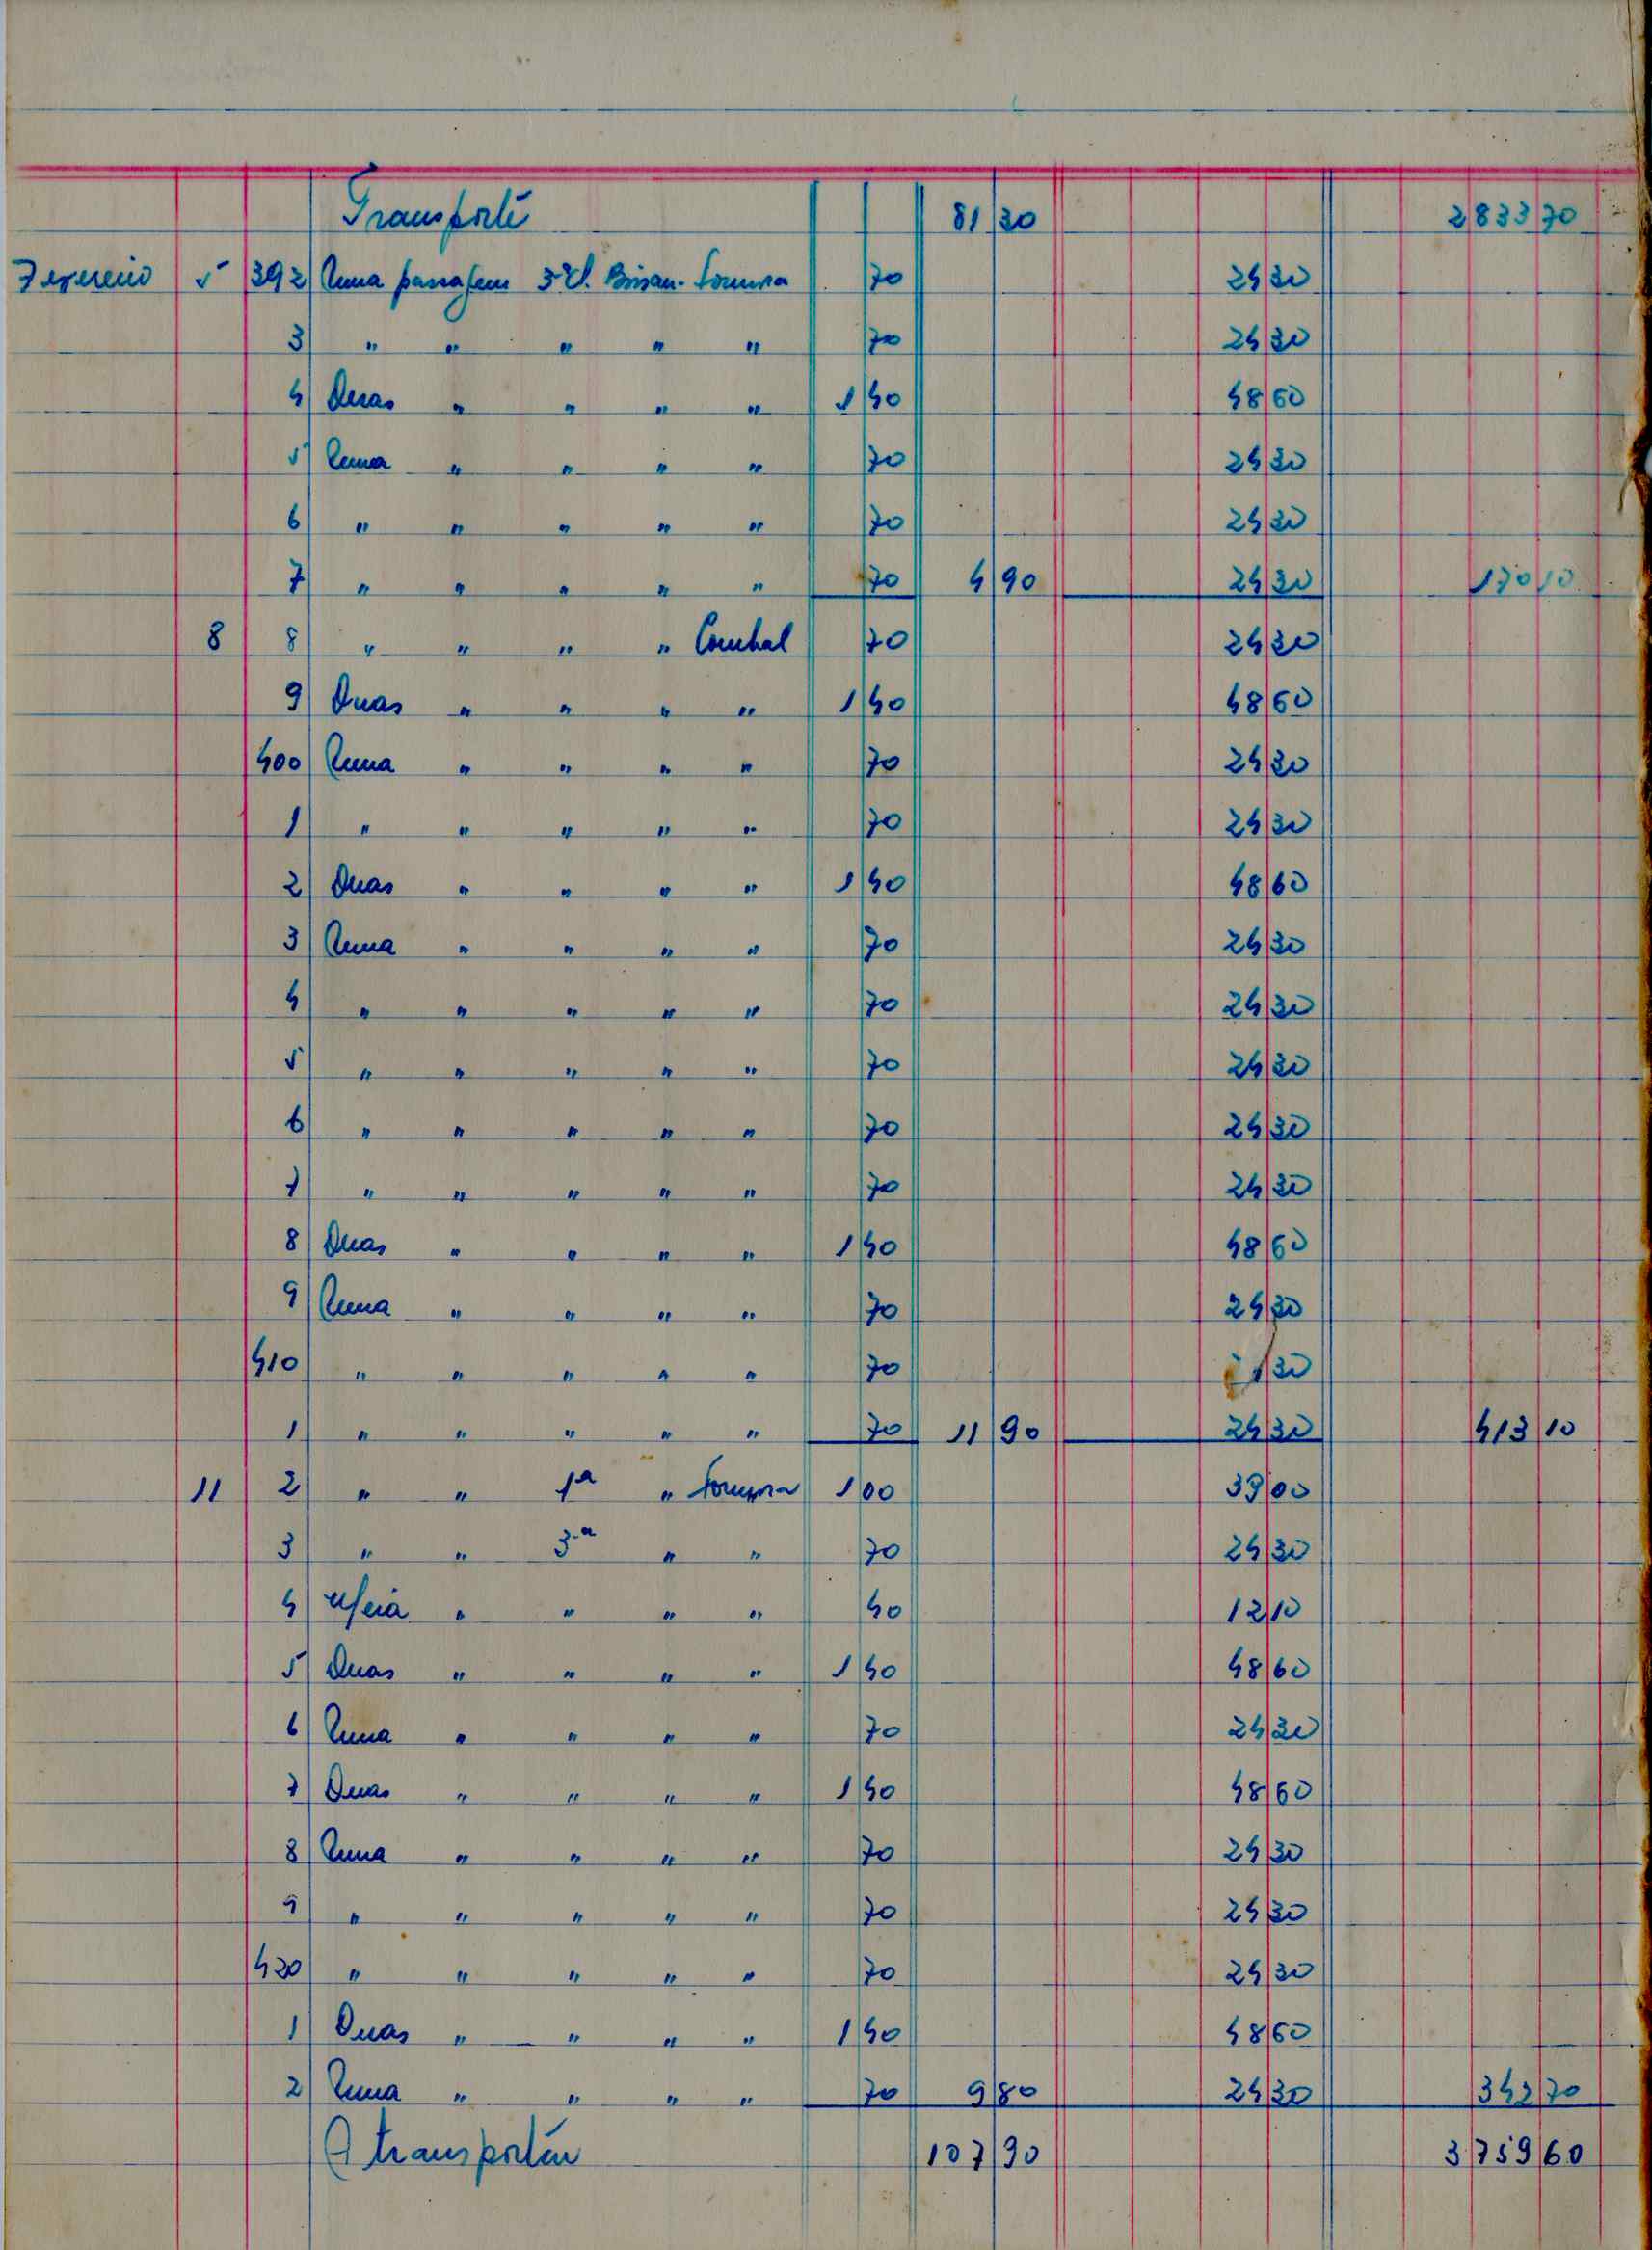 Transporte 81 30 2833 70
Fevereiro 5 392 Uma passagem 3ª Cl. Bissau- 70 24 30
3 " " " " " 70 24 30
4 Duas " " " " 1 40 48 60
5 Uma " " " " 70 24 30
6 " " " " " 70 24 30
7 " " " " " 70 4 90 24 30 170 10
8 8 " " " " 70 24 30
9 Duas " " " " 1 40 48 60
400 Uma " " " " 70 24 30
1 " " " " " 70 24 30
2 Duas " " " " 1 40 48 60
3 Uma " " " " 70 24 30
4 " " " " " 70 24 30
5 " " " " " 70 24 30
6 " " " " " 70 24 30
7 " " " " " 70 24 30
8 Duas " " " " 1 40 48 60
9 Uma " " " " 70 24 30
410 " " " " " 70 30
1 " " " " " 70 11 90 24 30 413 10
11 2 " " 1ª " 1 00 39 00
3 " " 3ª " " 70 24 30
4 Meia " " " " 40 12 10
5 Duas " " " " 1 40 48 60
6 Uma " " " " 70 24 30
7 Duas " " " " 1 40 48 60
8 Uma " " " " 70 24 30
9 " " " " " 70 24 30
420 " " " " " 70 24 30
1 Duas " " " " 1 40 48 60
2 Uma " " " " 70 9 80 24 30 342 70
A transportar 107 90 3759 60